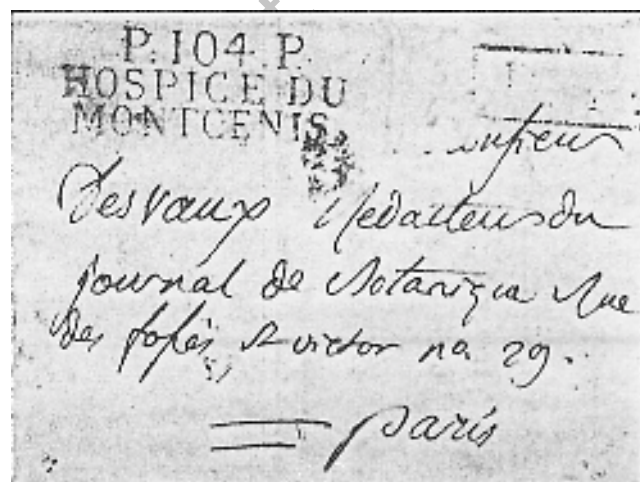 P.104.P.
HOSPICE DU
MONTCENIS
Desvaux Rédacteur du
journal de Botanique Rue
des fossés St victor no 29.
paris